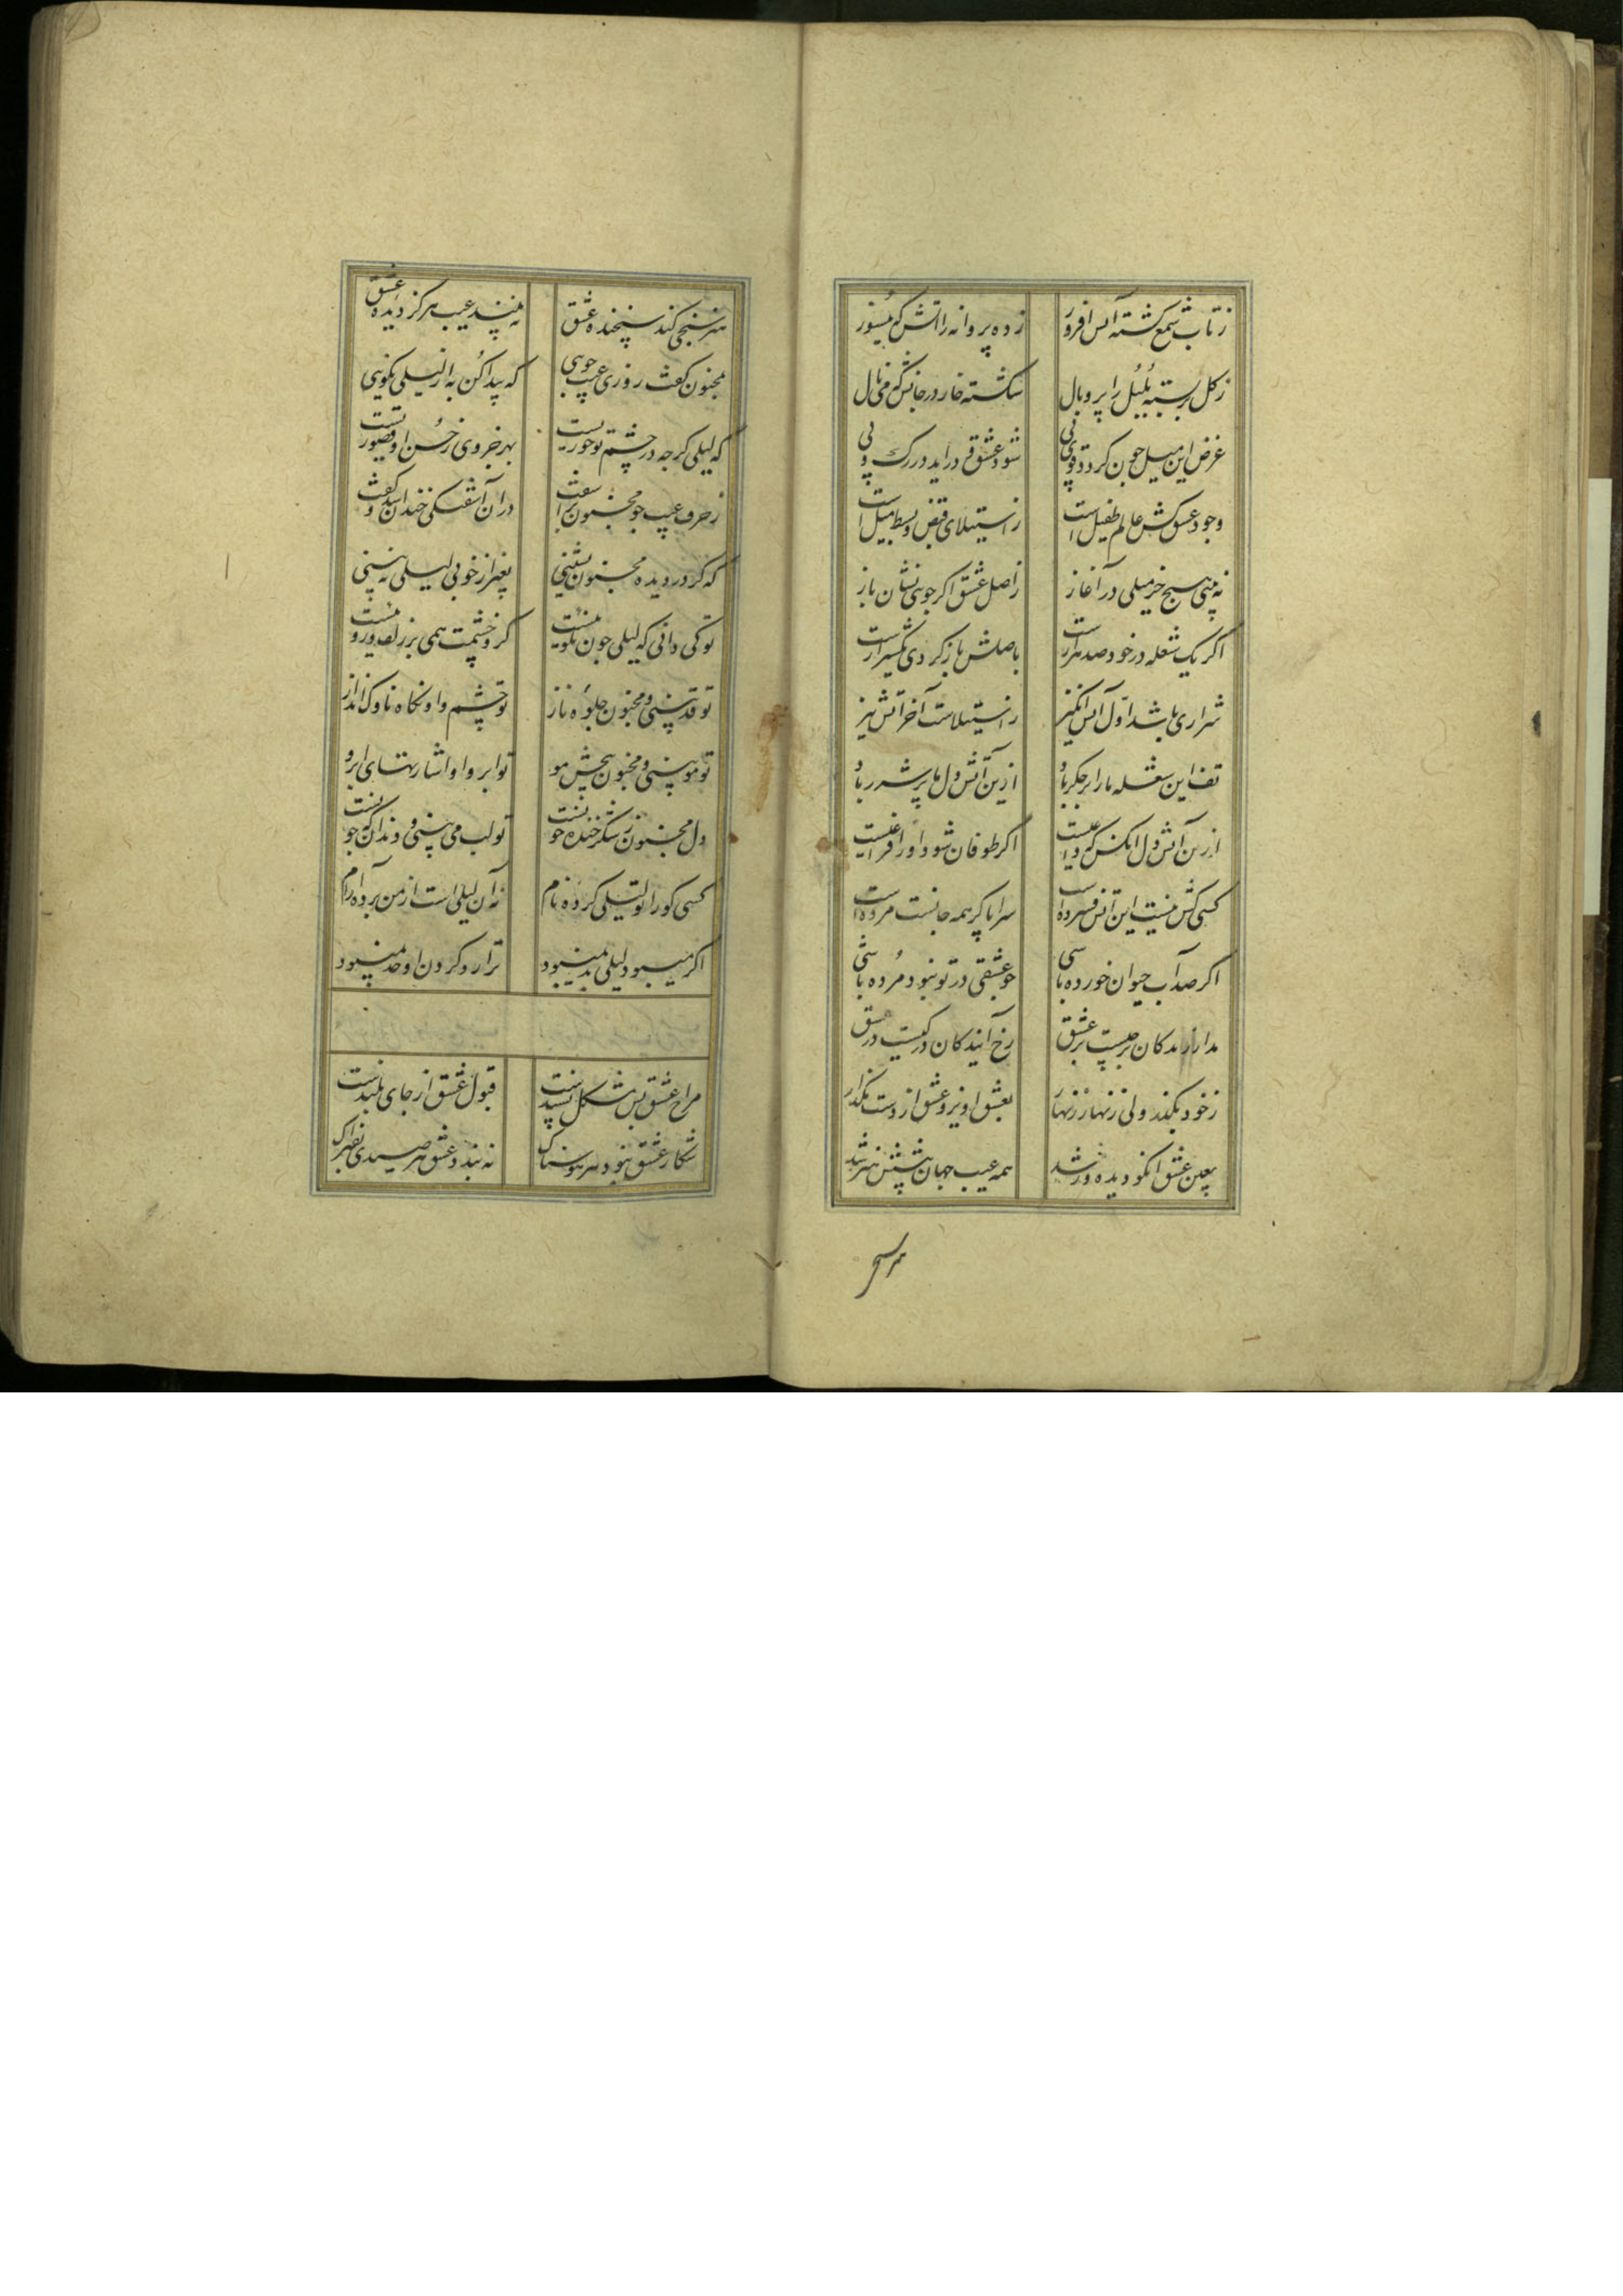 ز تاب شمع کشته آتش افروز زده پروانه را آتش که میسوز
ز کل بر بسته بلبل را پر و بال شکسته خار در جانش که می نال
غرض این میل چون کردد قوی پی شود عشق و در آید در رک و پی
وجود عشق کش عالم طفیل است ز استیلای قبض و بسط میل است
نه بینی هیچ جز میلی در آغاز ز اصل عشق اکر جویی نشان باز
اکر یک شعله در خود صد هزارست باصلش باز کردی یک شرارست
شراری باشد اول آتش انکیز ز استیلاست آخر آتش تیز
تف این شعله ما را بر جکر باد ازین آتش دل ما پر شرر باد
ازین آتش دل آنکس که داغیست اکر طوفان شود او را فراغیست
کسی کش نیست این آتش فسرده است سراپا کر همه جانست مرده است
اکر صد آب حیوان خورده باشی چو عشقی در تو نبود مرده باشی
مدار زندکان بر چیست بر عشق رخ آیندکان در کیست در عشق
ز خود بکذر ولی زنهار زنهار بعشق آویز و عشق از دست مکذار
بعین عشق آنکو دیده ور شد همه عیب جهان پیشش هنر شد
هنر سنج
هنر سنجی کند سنجیده عشق نه بیند عیب هرکز دیده عشق
بمجنون کفت روزی عیب جویی که پیدا کن به از لیلی نکویی
که لیلی کرچه در چشم تو حوریست بهر جزوی ز حسن او قصوریست
ز حرف عیب جو مجنون برآشفت در آن آشفتکی خندان شد و کفت
که کر در دیده مجنون نشینی بغیر از خوبی لیلی نه بینی
تو کی دانی که لیلی چون نکوییست کزو چشمت همی بر زلف و روییست
تو قد بینی و مجنون جلوه ناز تو چشم و او نکاه ناوک انداز
تو مو بینی و مجنون پیچش مو تو ابرو او اشارتهای ابرو
دل مجنون ز شکر خنده خونست تو لب می بینی و دندان که چونست
کسی کو را تو لیلی کرده نام نه آن لیلی است از من برده آرام
اکر میبود لیلی بد نمیبود ترا رد کردن او حد نمیبود
مزاج عشق بس مشکل پسندست قبول عشق از جای بلندست
شکار عشق نبود هر هوسناک نه بندد عشق هر صیدی بفتراک